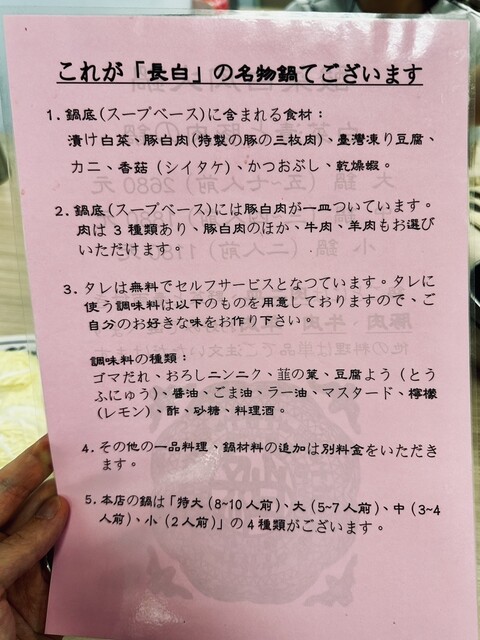 これが「長白」の名物鍋てございます
1. 鍋底(スープベース)に含まれる食材：
漬け白菜、豚白肉(特製の豚の三枚肉)、臺灣凍り豆腐、
カニ、香菇 (シイタケ)、かつおぶし、乾燥蝦。
2. 鍋底(スープベース)には豚白肉が一皿ついています。
肉は 3 種類あり、豚白肉のほか、牛肉、羊肉もお選び
いただけます。
3. タレは無料でセルフサービスとなつています。タレに
使う調味料は以下のものを用意しておりますので、ご
自分のお好きな味をお作り下さい。
調味料の種類：
ゴマだれ、おろしニンニク、韮の葉、豆腐よう (とう
ふにゅう)、醬油、ごま油、ラー油、マスタード、檸檬
(レモン)、酢、砂糖、料理酒。
4. その他の一品料理、鍋材料の追加は別料金をいただき
ます。
5. 本店の鍋は「特大 (8~10 人前)、大 (5~7 人前)、中 (3~4
人前)、小 (2 人前)」の 4 種類がございます。